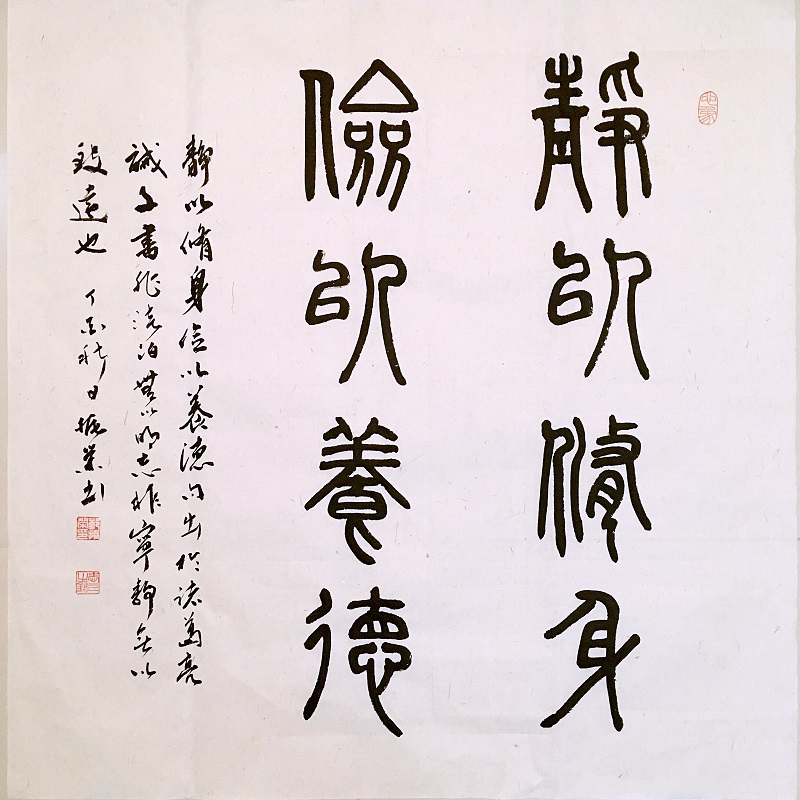 靜以修身
儉以養德
靜以脩身儉以養德句出於諸葛亮
誡子書非淡泊無以明志非寧靜無以
致遠也 丁酉秋日振業書